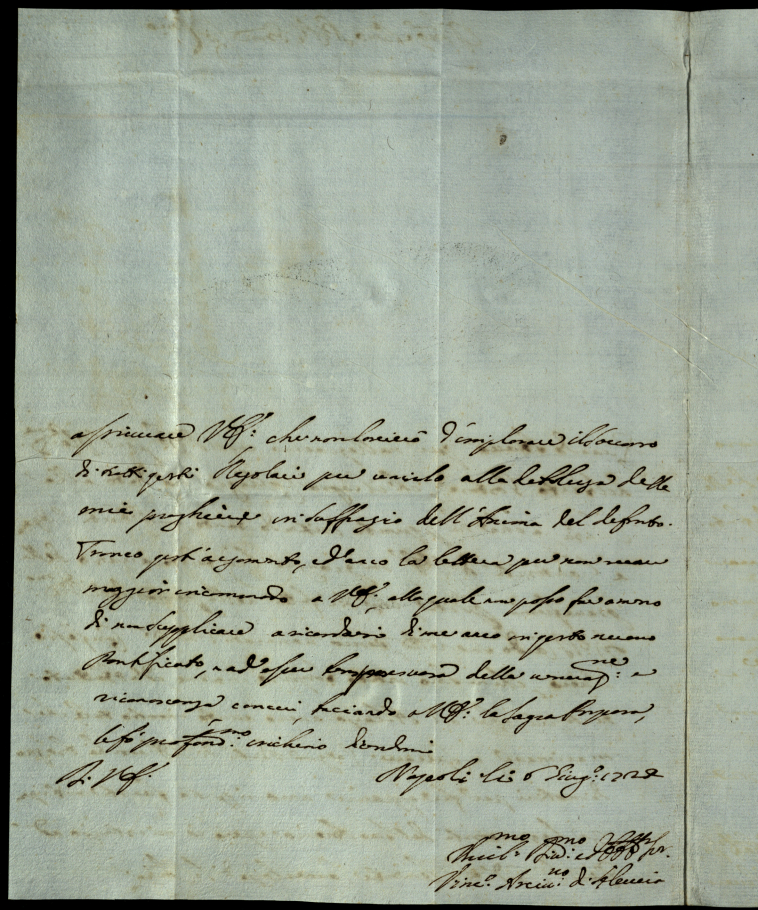 assicurare V.E: che non lascierò d'implorare il soccorso
di tutti questi Regolari per unirlo alla debolezza delle
mie preghiere in suffragio dell'Anima del defonto.
Tronco quest'argomento, ed'anco la lettera per non recare
maggior incommodo a V.E: alla quale non posso far a meno
di non supplicare a ricordarsi di me anco in questo nuovo
Pontificato, ad esser della veneraz:ne e
riconoscenza con cui, baciando a V.E: la Sagra Porpora,
le fò profond:mo inchino
Di V.E:
Napoli li 6 Giug:o
Umil:mo Div:mo ed Obb
Vinc:o Arciv:o di